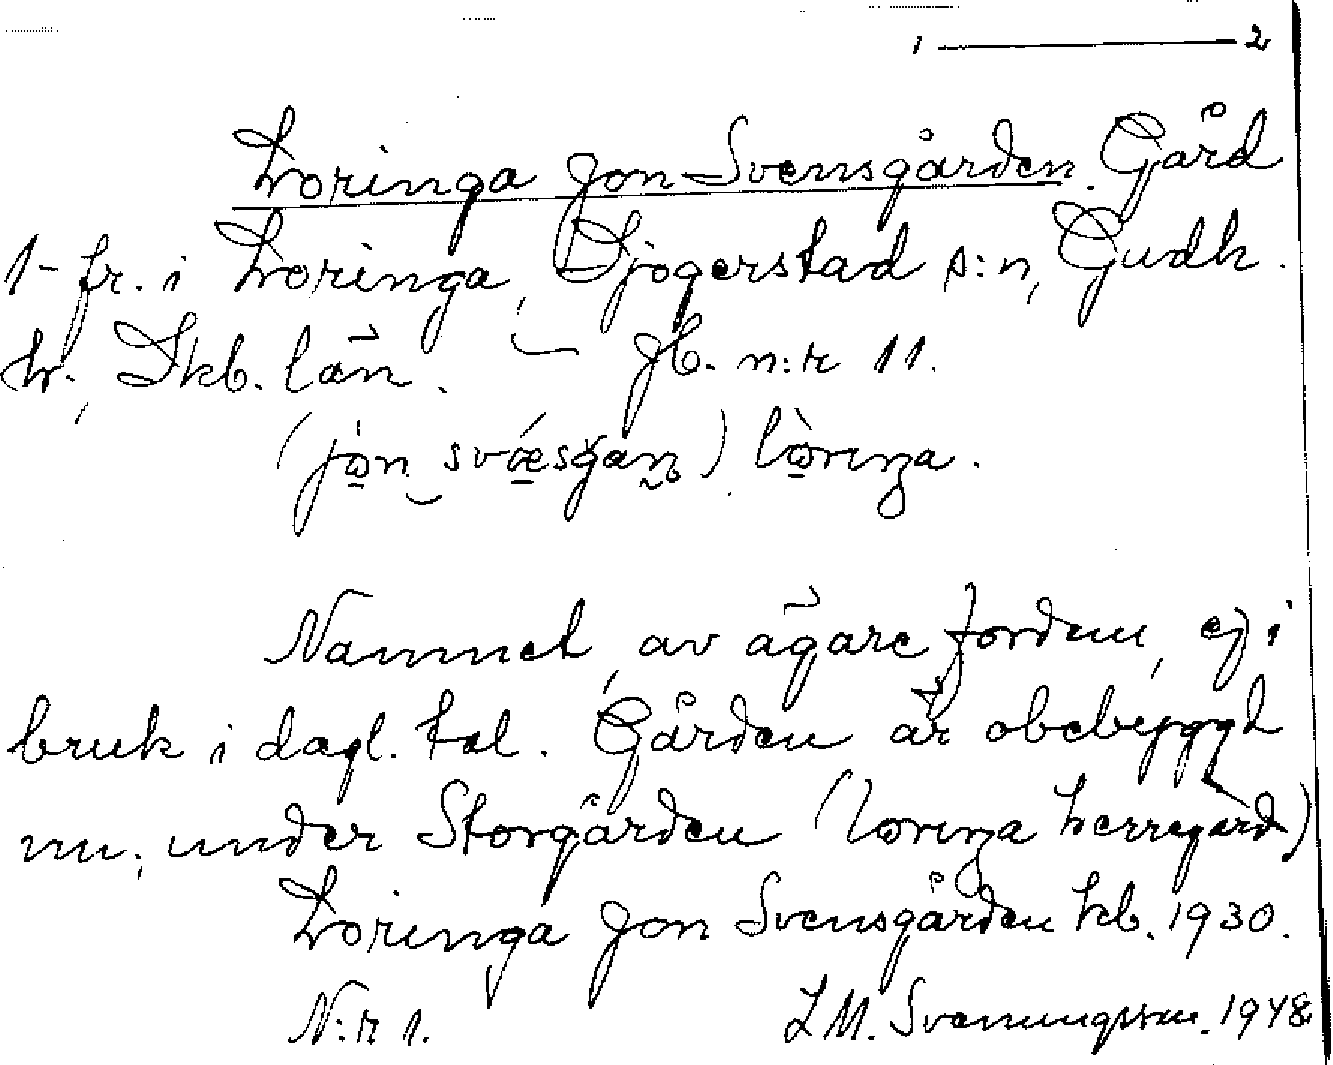 1 — 2
Loringa Jon-Svensgården. Gård
1- fr. i Loringa, Sjogerstad s:n, Gudh.
hr., Skb. län. — Jb. n:r 11.
(jòn svǽsgaɳ) lòrıŋa.
Namnet, av ägare fordem, ej i
bruk i dagl. tal. Gården är obebyggd
nu, under Storgården (lorıŋa herregård)
Loringa Jon Svensgården hb. 1930.
N:r 1.
L M. Svenungsson. 1948